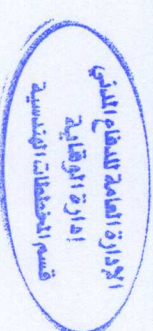 الإدارة العامة للدفاع المدني
إدارة الوقاية
قسم المخططات الهندسية